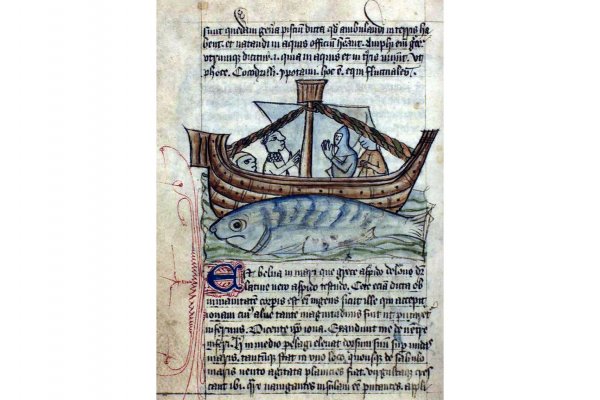 sunt quedam genera pisciū dicta qd ambulandi in terris ha
bent. et natandi in aquis officiū hēant. Amphi em gre
utrumque dicitur .i. quia in aquis et in tris uiuūt. ut
phoce. Cocodrilli. ypotami. hoc ē. equi fluctuales.
Est belua in mari que grece aspido delone dr
latine uero aspido testudo. Cete eciā dicta ob
inmanitatem corpis est em ingens sicut ille qui excepit
ionam cuiꝰ aluꝰ tante magnitudinis fuit ut putaret
infernus. Dicente ipo iona. Exaudiuit me de uentre
inferi. H in medio pelagi eleuat dorsum suū sup undas
maris. tantumque stat in uno loco. quousque de sabulo
maris uento agitata planicies fiat. uirgultaque cres
cant ibi. Qre nauigantes insulam eē putantes. appli